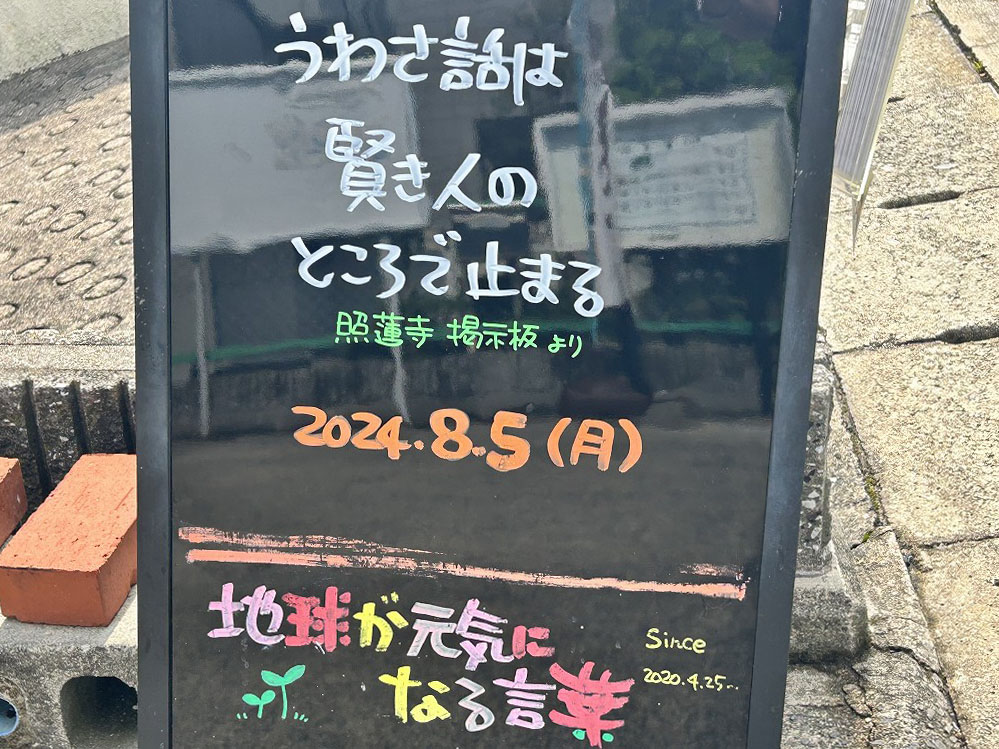 うわさ話は
賢き人の
ところで止まる
照蓮寺 掲示板より
2024.8.5(月)
地球が元気に
なる言葉
Since
2020.4.25~..